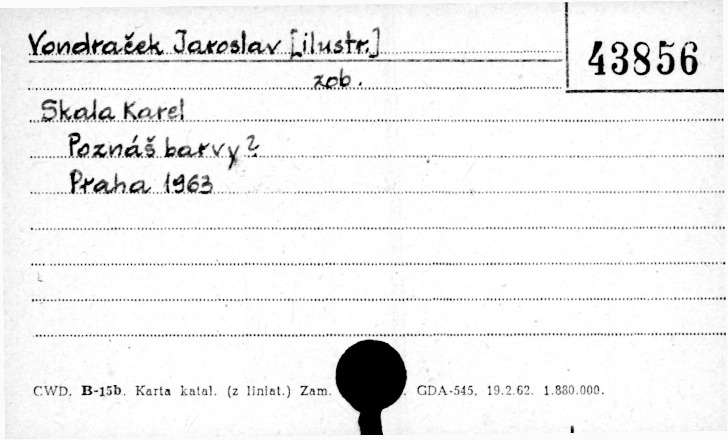 Vondraček Jaroslav [ilustr.]
43856
zob.
Skala Karel
Poznáš barvy?
Praha 1963
CWD. B-15b. Karta katal. (z liniat.) Zam. GDA-545. 19.2.62. 1.880.000.